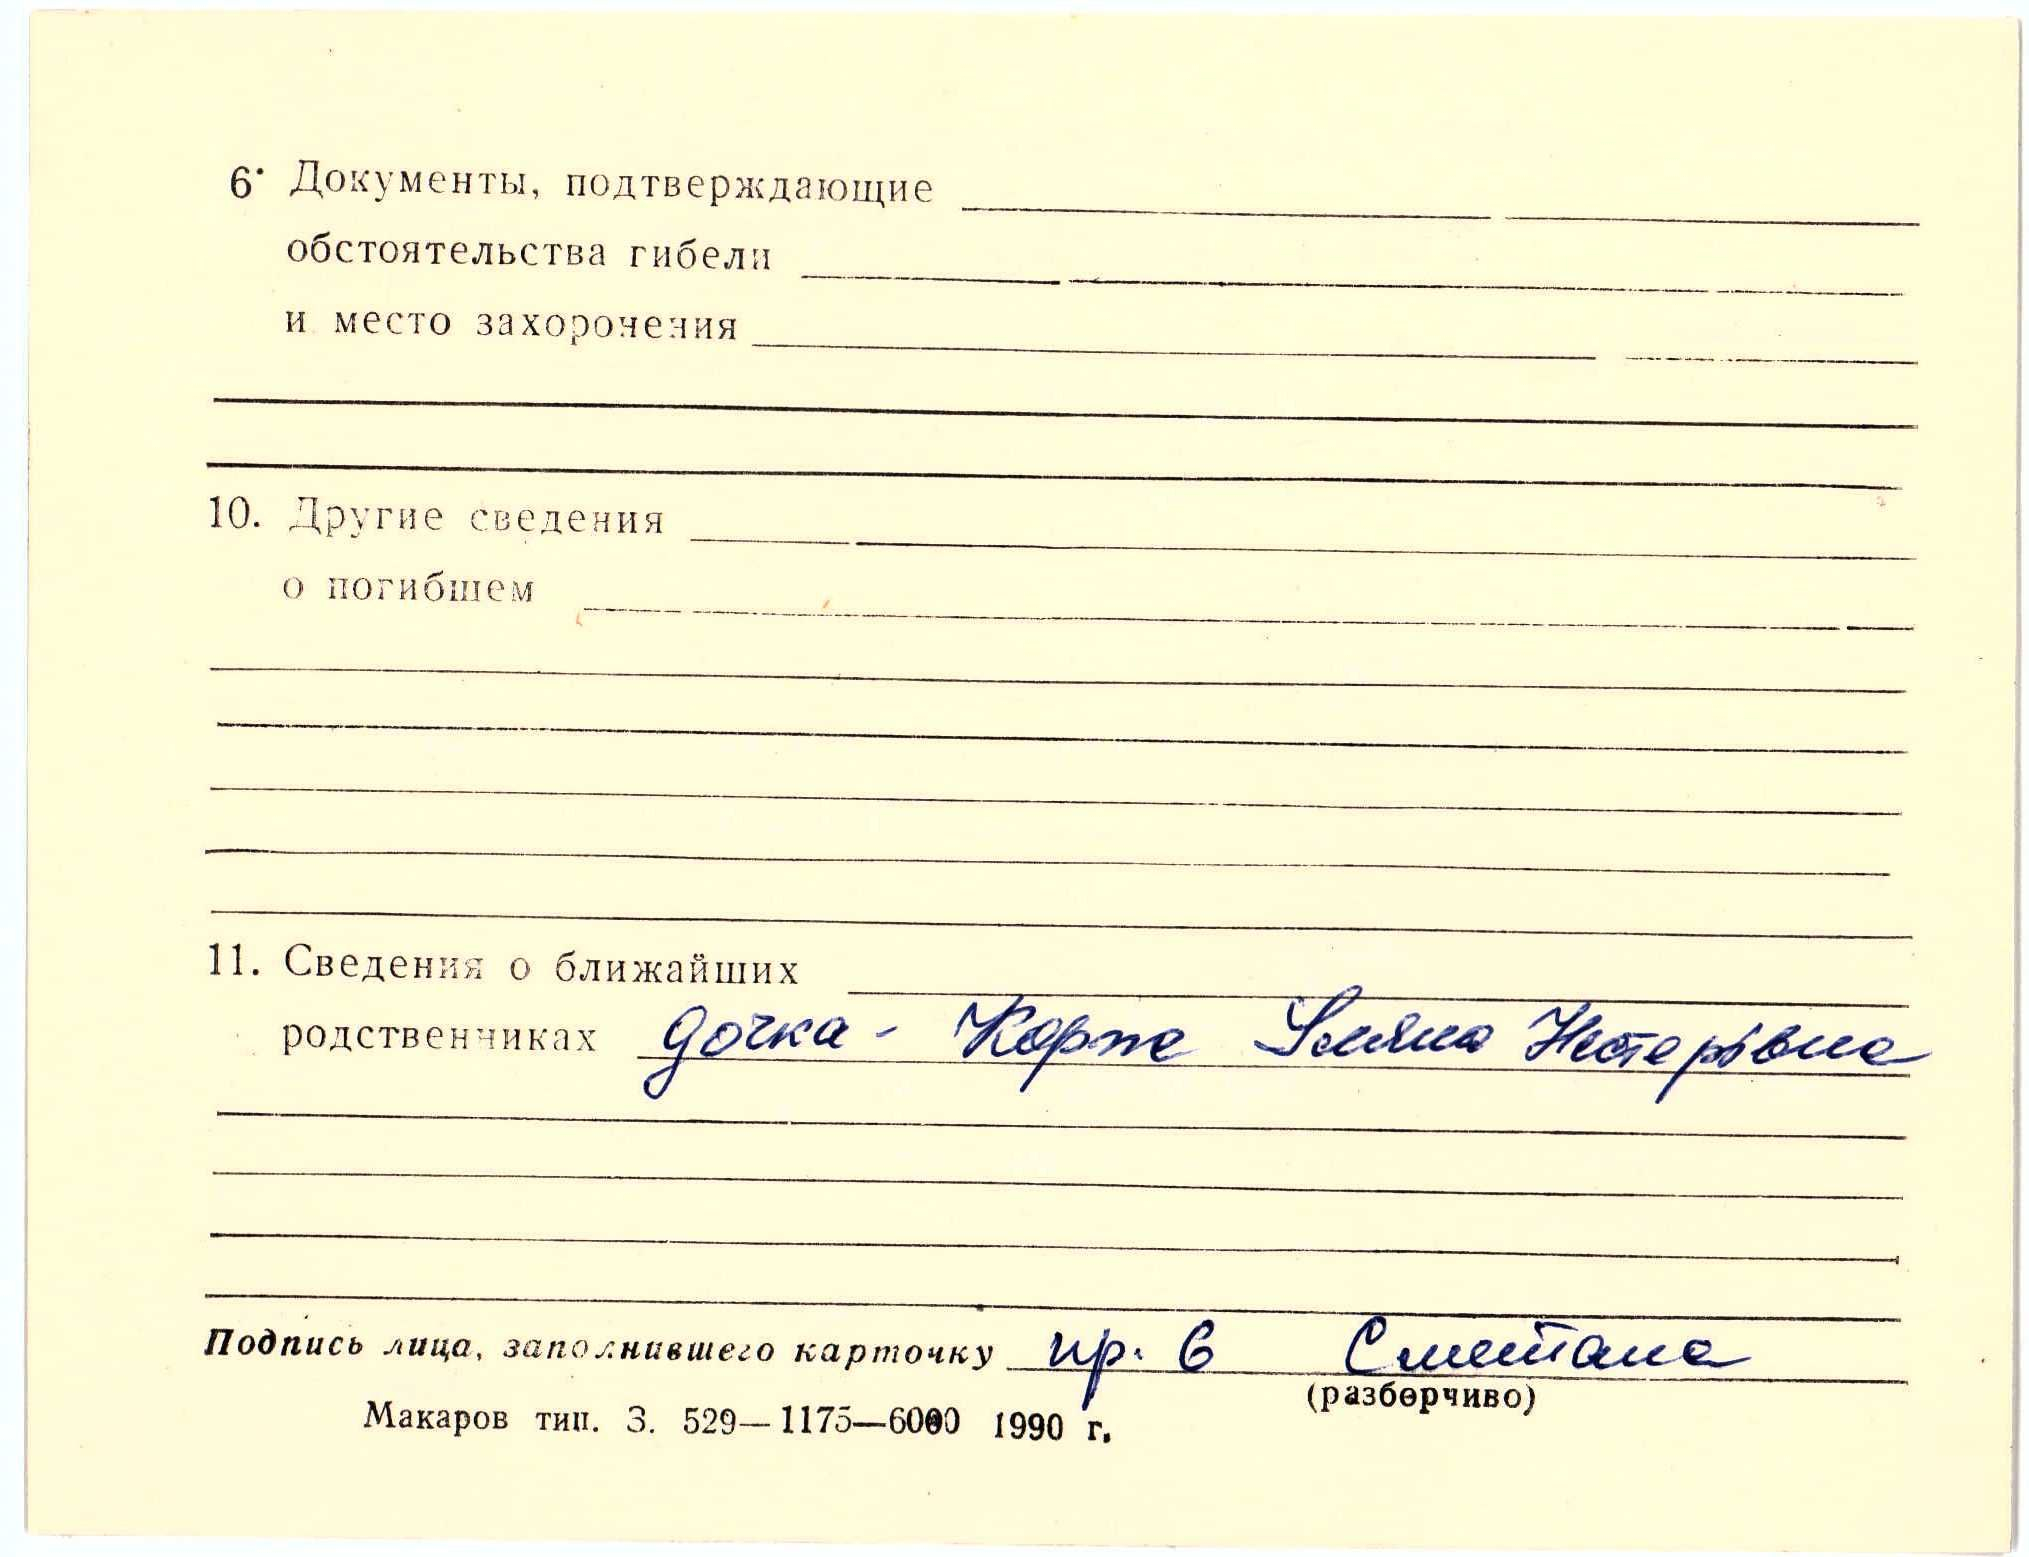 6. Документы, подтверждающие
обстоятельства гибели
и место захоронения
10. Другие сведения
о погибшем
11. Сведения о ближайших
родственниках дочка - Корже Уляна Нестерівна
Подпись лица, заполнившего карточку пр. в Сметана
(разборчиво)
Макаров тип. З. 529—1175—6000 1990 г.